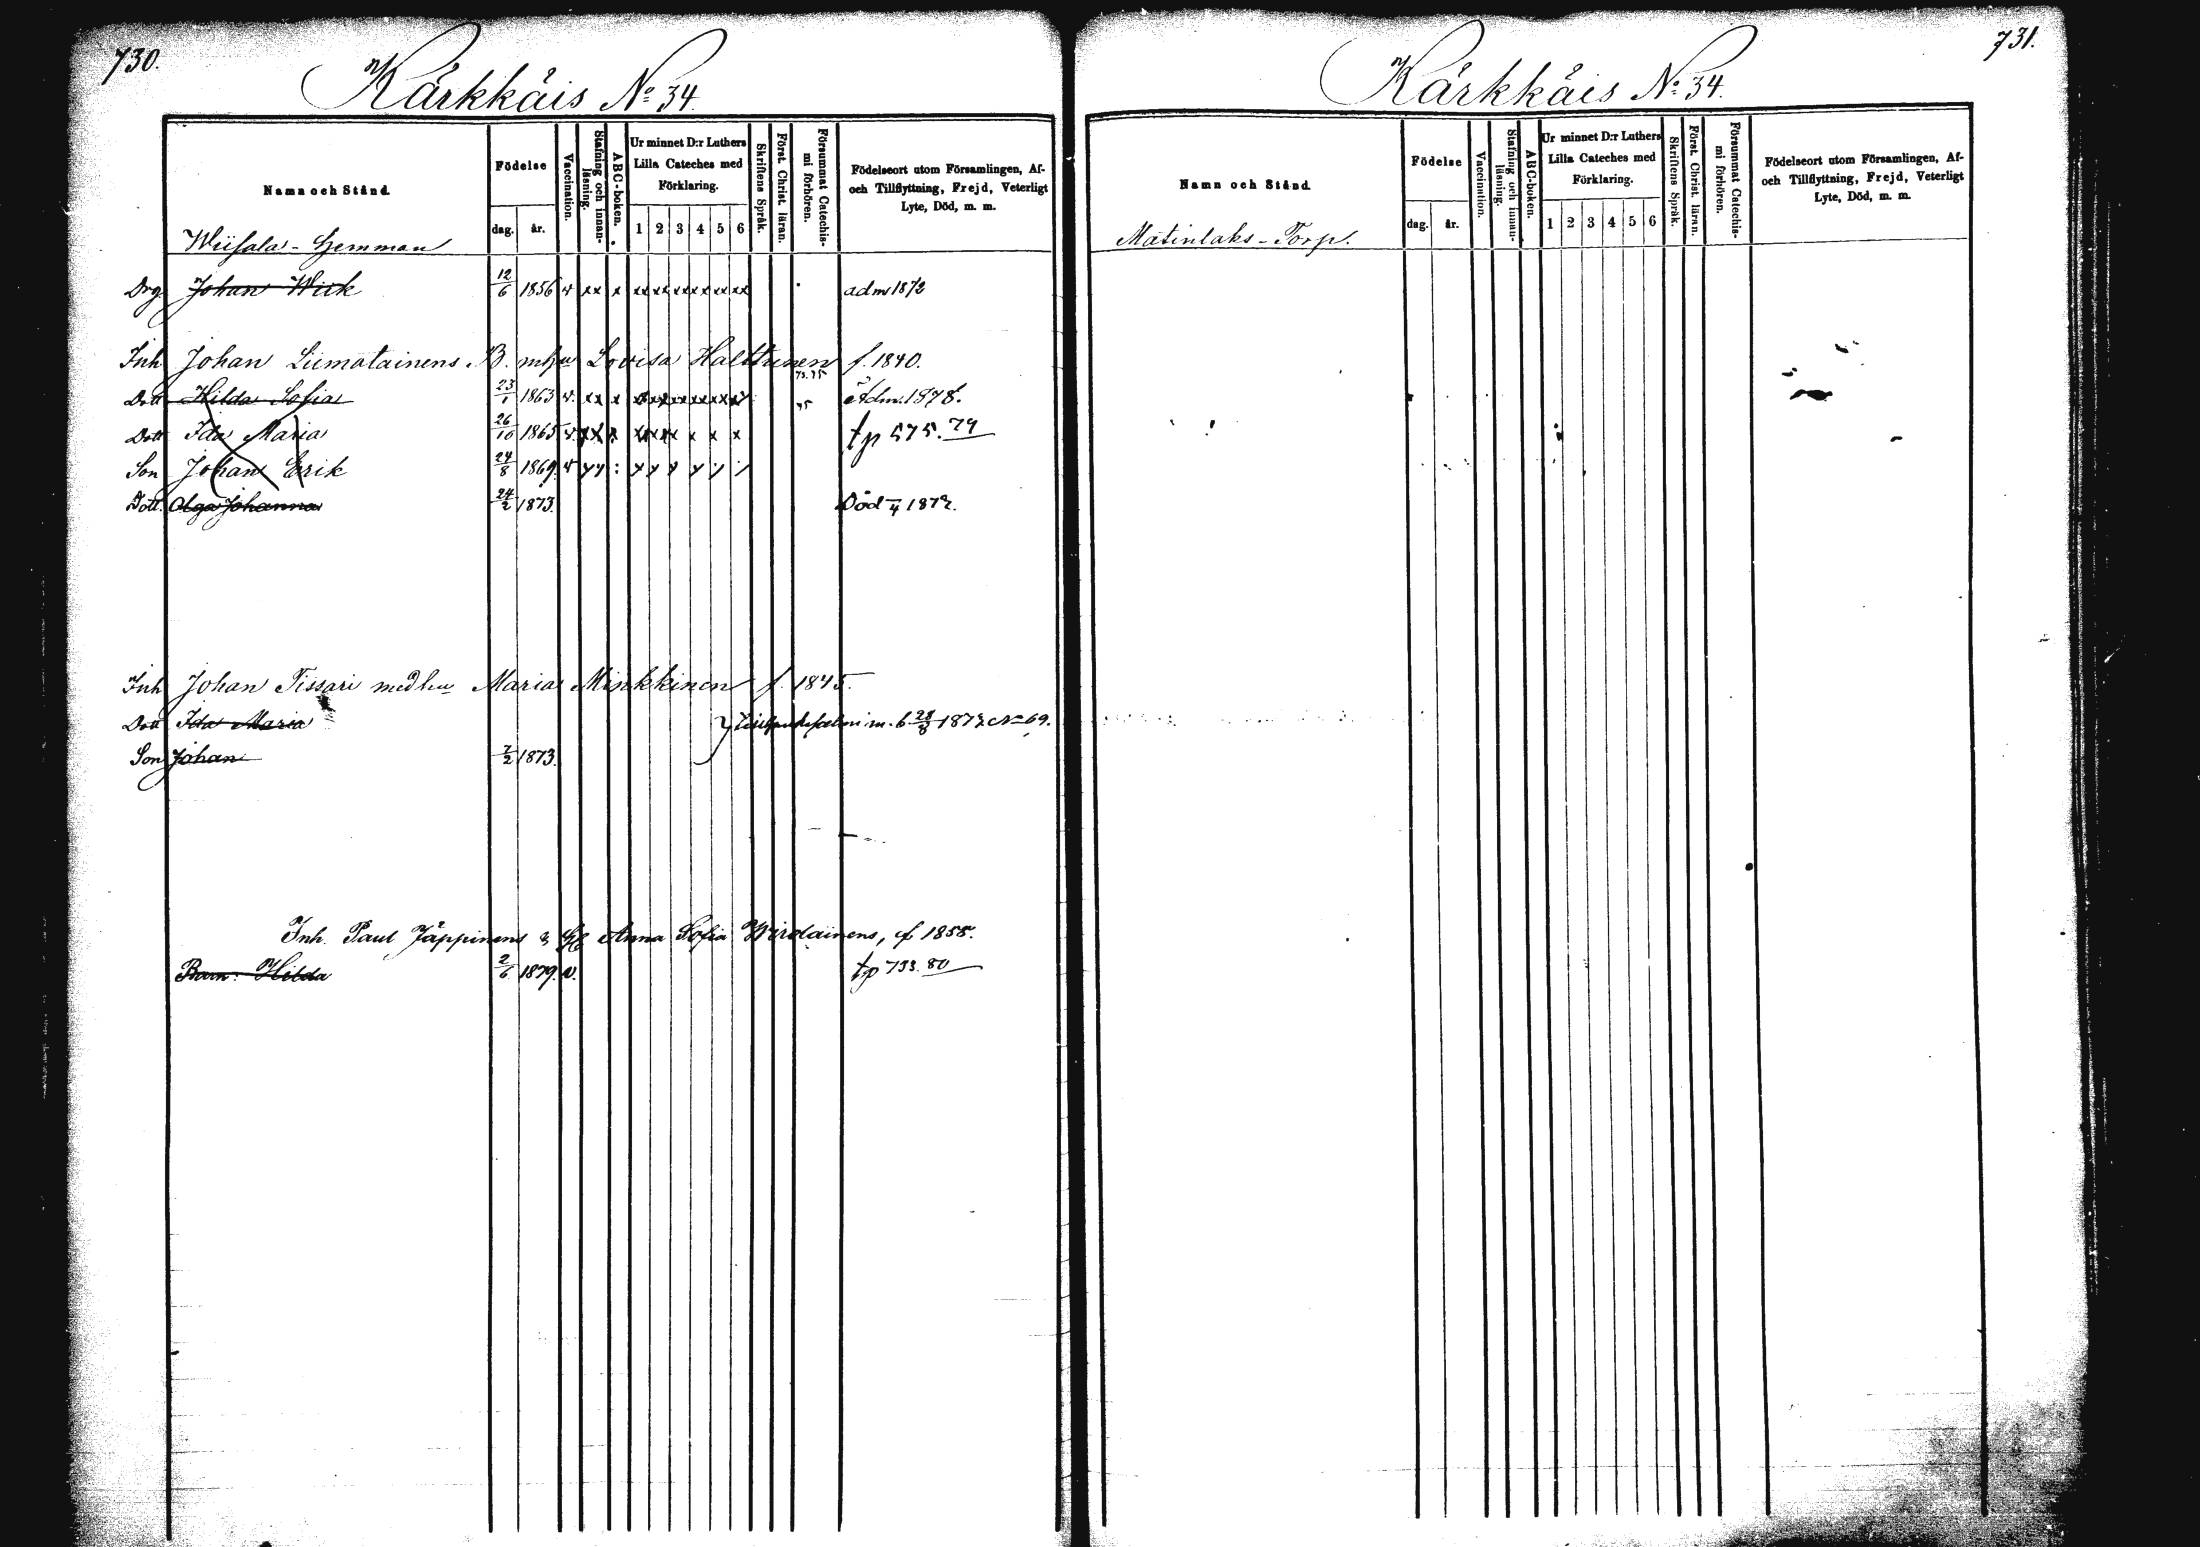 730.
Kärkkäis No 34.
Namn och Stånd.
Födelse
dag.
år.
Vaccination.
Stafning och innan-
läsning.
ABC-boken.
Ur minnet D:r Luthers
Lilla Cateches med
Förklaring.
1 2 3 4 5 6
Skriftens Språk.
Först. Christ. läran.
Försummat Catechis-
mi förhören.
Födelseort utom Församlingen, Af-
och Tillflyttning, Frejd, Veterligt
Lyte, Död, m. m.
Wiisala-Hemman
Drg Johan Wirk 12/6 1856 v xx x xx xx xx xx xx xx adm 1872
Inh Johan Liimatainens B. mhu Lovisa Halttunen f. 1840.
73.75
Dott Hilda Sofia 23/1 1863 v. xx x 75 Adm. 1878.
Dott Ida Maria 26/10 1865 v. xx x tp 575. 79
Son Johan Erik 24/8 1869. v
Dott. Olga Johanna 24/2 1873. Död 1873.
Inh Johan Tissari med hu Maria Minkkinen f. 1845.
Dott Ida Maria m. b 28/8 1873 No 69.
Son Johan 7/2 1873.
Inh. Paul Jäppinens & Anna Sofia Wirolainens, f 1855.
Barn: Hilda 2/6 1879. v. tp 733. 80
731.
Kärkkäis No 34.
Namn och Stånd.
Födelse
dag.
år.
Vaccination.
Stafning och innan-
läsning.
ABC-boken.
Ur minnet D:r Luthers
Lilla Cateches med
Förklaring.
1 2 3 4 5 6
Skriftens Språk.
Först. Christ. läran.
Försummat Catechis-
mi förhören.
Födelseort utom Församlingen, Af-
och Tillflyttning, Frejd, Veterligt
Lyte, Död, m. m.
Matinlaks-Torp.